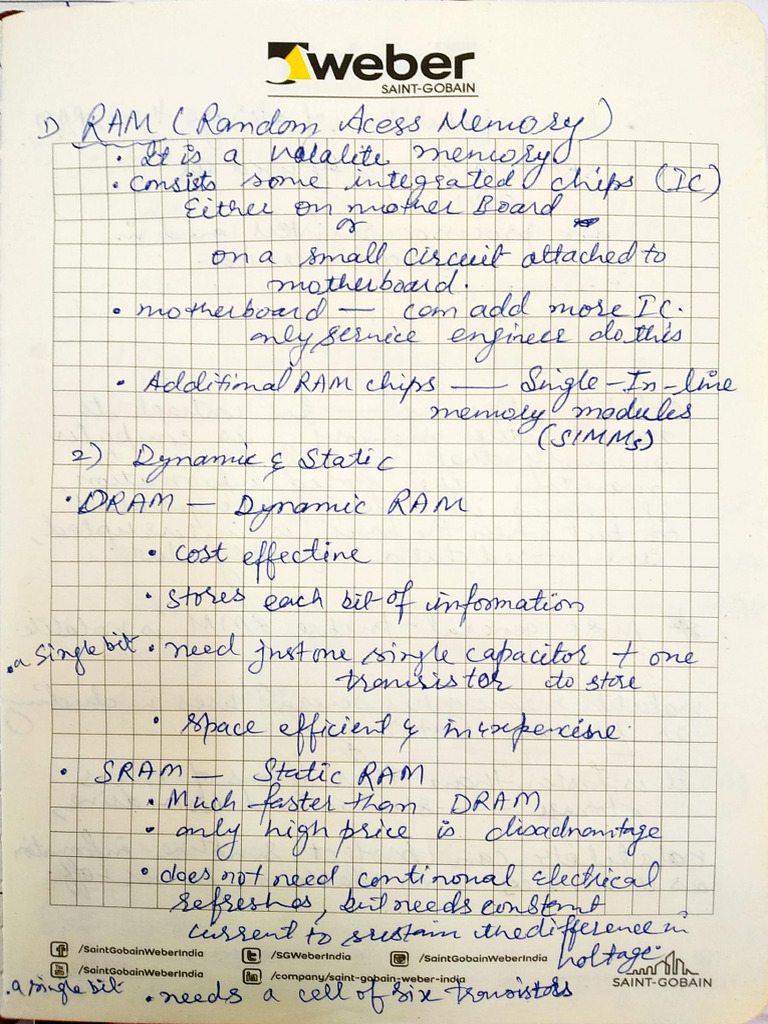 weber
SAINT-GOBAIN
1) RAM (Random Acess Memory)
• It is a Volalite memory
• consists some integrated chips (IC)
Either on mother Board
or
on a small circuit attached to
motherboard.
• motherboard — can add more IC.
only service engineer do this
• Additional RAM chips — Single-In-line
memory modules
(SIMMs)
2) Dynamic & Static
• DRAM — Dynamic RAM
• cost effective
• stores each bit of information
• a single bit • need just one single capacitor + one
transistor to store
• space efficient & inexpencive.
• SRAM — Static RAM
• Much faster than DRAM
• only high price is disadvantage
• does not need continonal electrical
refreshes, but needs constent
current to sustain the difference in
voltage.
/SaintGobainWeberIndia /SGWeberIndia /SaintGobainWeberIndia
/SaintGobainWeberIndia /company/saint-gobain-weber-india
SAINT-GOBAIN
• a single bit • needs a cell of six transistors